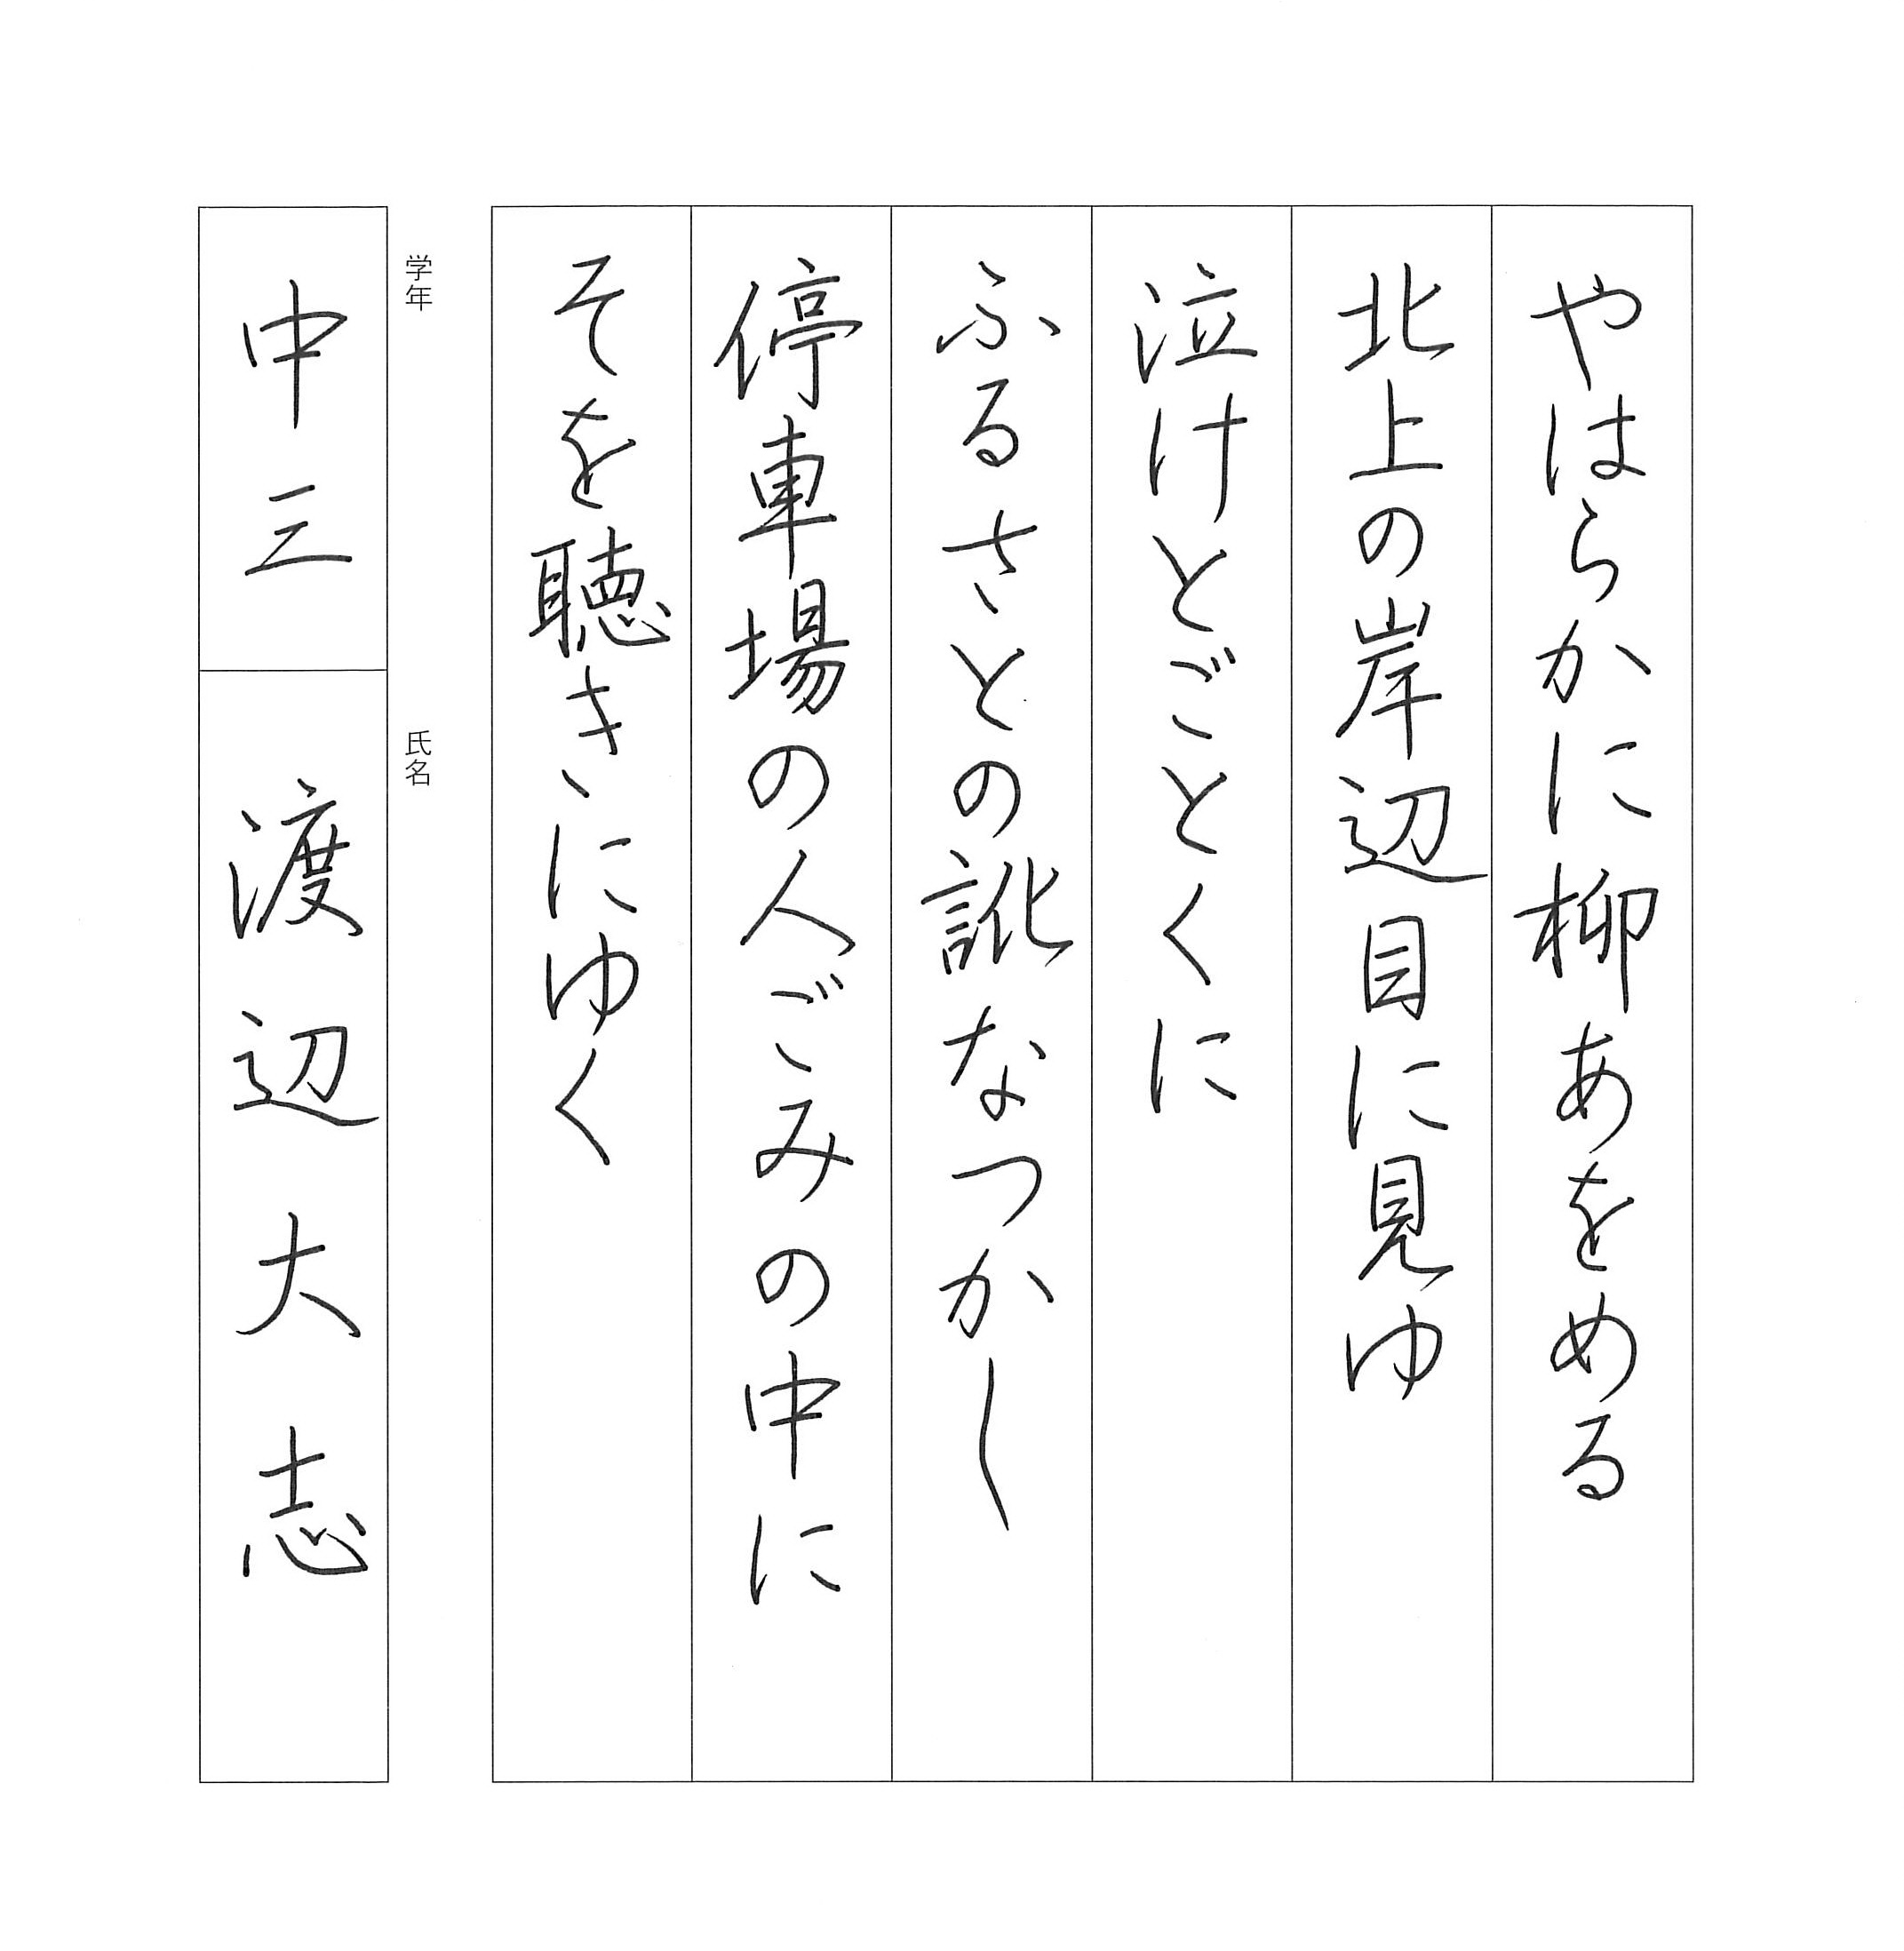 やはらかに柳あをめる
北上の岸辺目に見ゆ
泣けとごとくに
ふるさとの訛なつかし
停車場の人ごみの中に
そを聴きにゆく
学年
中三
氏名
渡辺大志